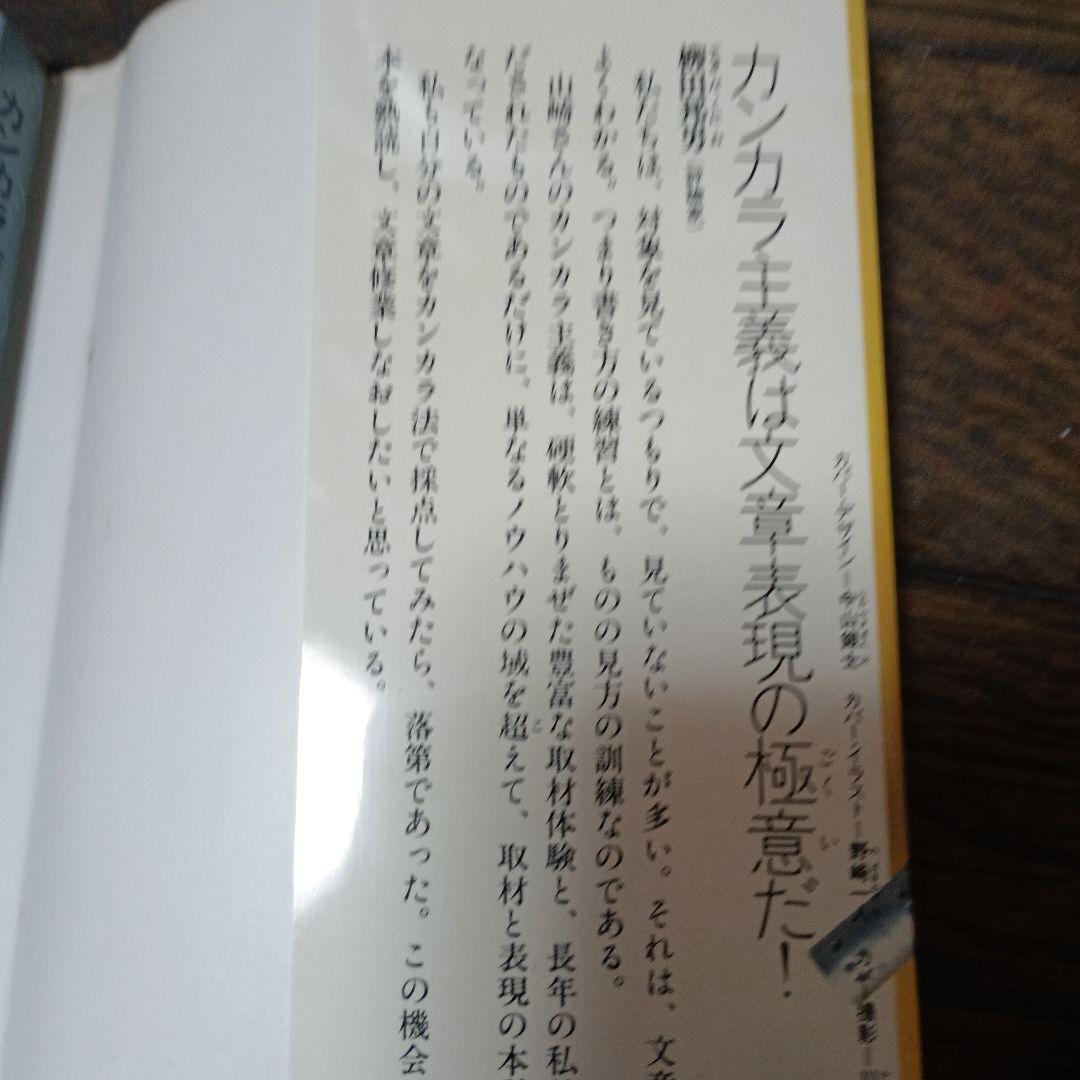 カンカラ主義は文章表現の極意だ!
柳田邦男(評論家)
私たちは、対象を見ているつもりで、見ていないことが多い。それは、文章
よくわかる。つまり書き方の練習とは、ものの見方の訓練なのである。
山崎さんのカンカラ主義は、硬軟とりまぜた豊富な取材体験と、長年の私
だされたものであるだけに、単なるノウハウの域を超えて、取材と表現の本
なっている。
私も自分の文章をカンカラ法で採点してみたら、落第であった。この機会
本を熟読し、文章修業しなおしたいと思っている。
カバーデザイン＝
カバーイラスト＝野崎一
撮影＝
カンカラ